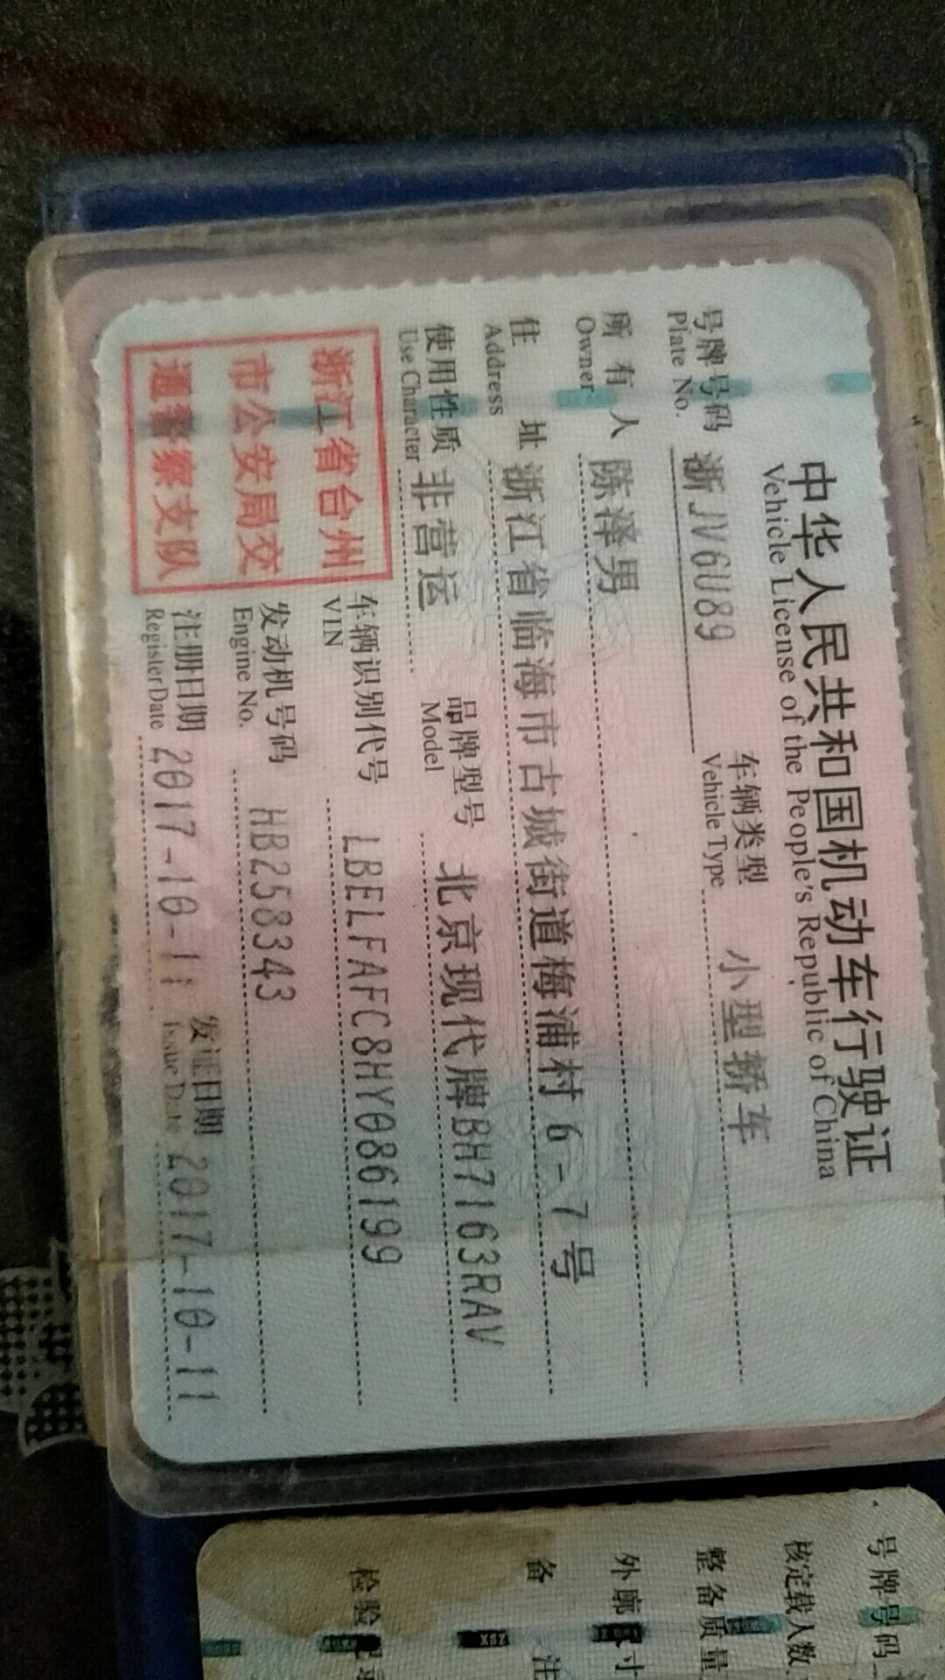 中华人民共和国机动车行驶证
Vehicle License of the People's Republic of China
号牌号码 浙JV6U89 车辆类型 小型轿车
Plate No. Vehicle Type
所有人 陈泽男
Owner
住址 浙江省临海市古城街道梅浦村6-7号
Address
使用性质 非营运 品牌型号 北京现代牌BH7163RAV
Use Character Model
浙江省台州
市公安局交
通警察支队
车辆识别代号 LBELFAFC8HY086199
VIN
发动机号码 HB258343
Engine No.
注册日期 2017-10-11 发证日期 2017-10-11
Register Date Issue Date
号牌号码
核定载人数
整备质量
外廓尺寸
备注
检验记录